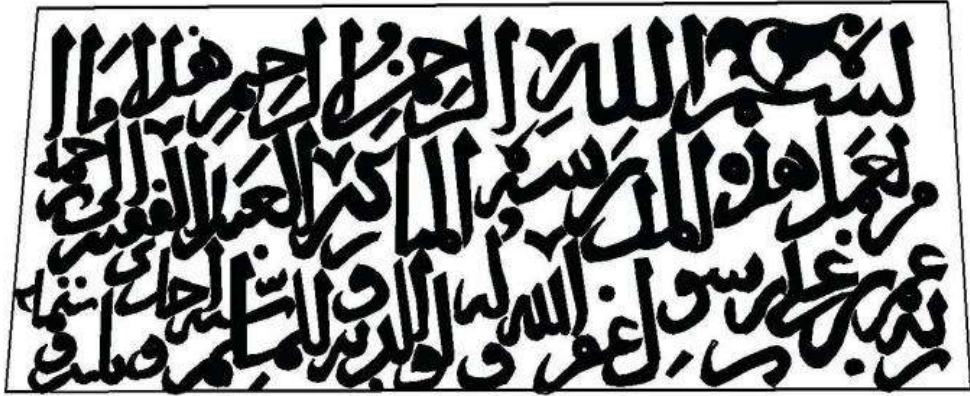 بسم الله الرحمن الرحيم هذا ما ا
مر بعمل هذه المدرسة المباركة العبد الفقير الى رحمة
ربه عمر بن علي بن رسول غفر الله له ولوالديه وللمسلمين سنة احدى وثلثين وستماية